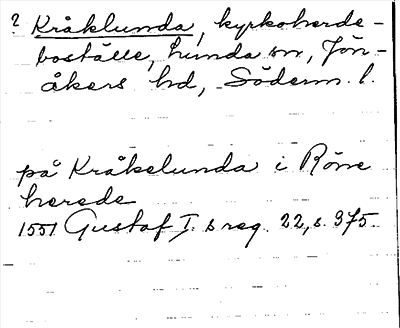 ? Kråklunda, kyrkoherde-
boställe, Lunda sn, Jön-
åkers hd, Söderm. l.
på Kråkelunda i Röne
herede
1551 Gustaf I:s reg. 22, s. 375.